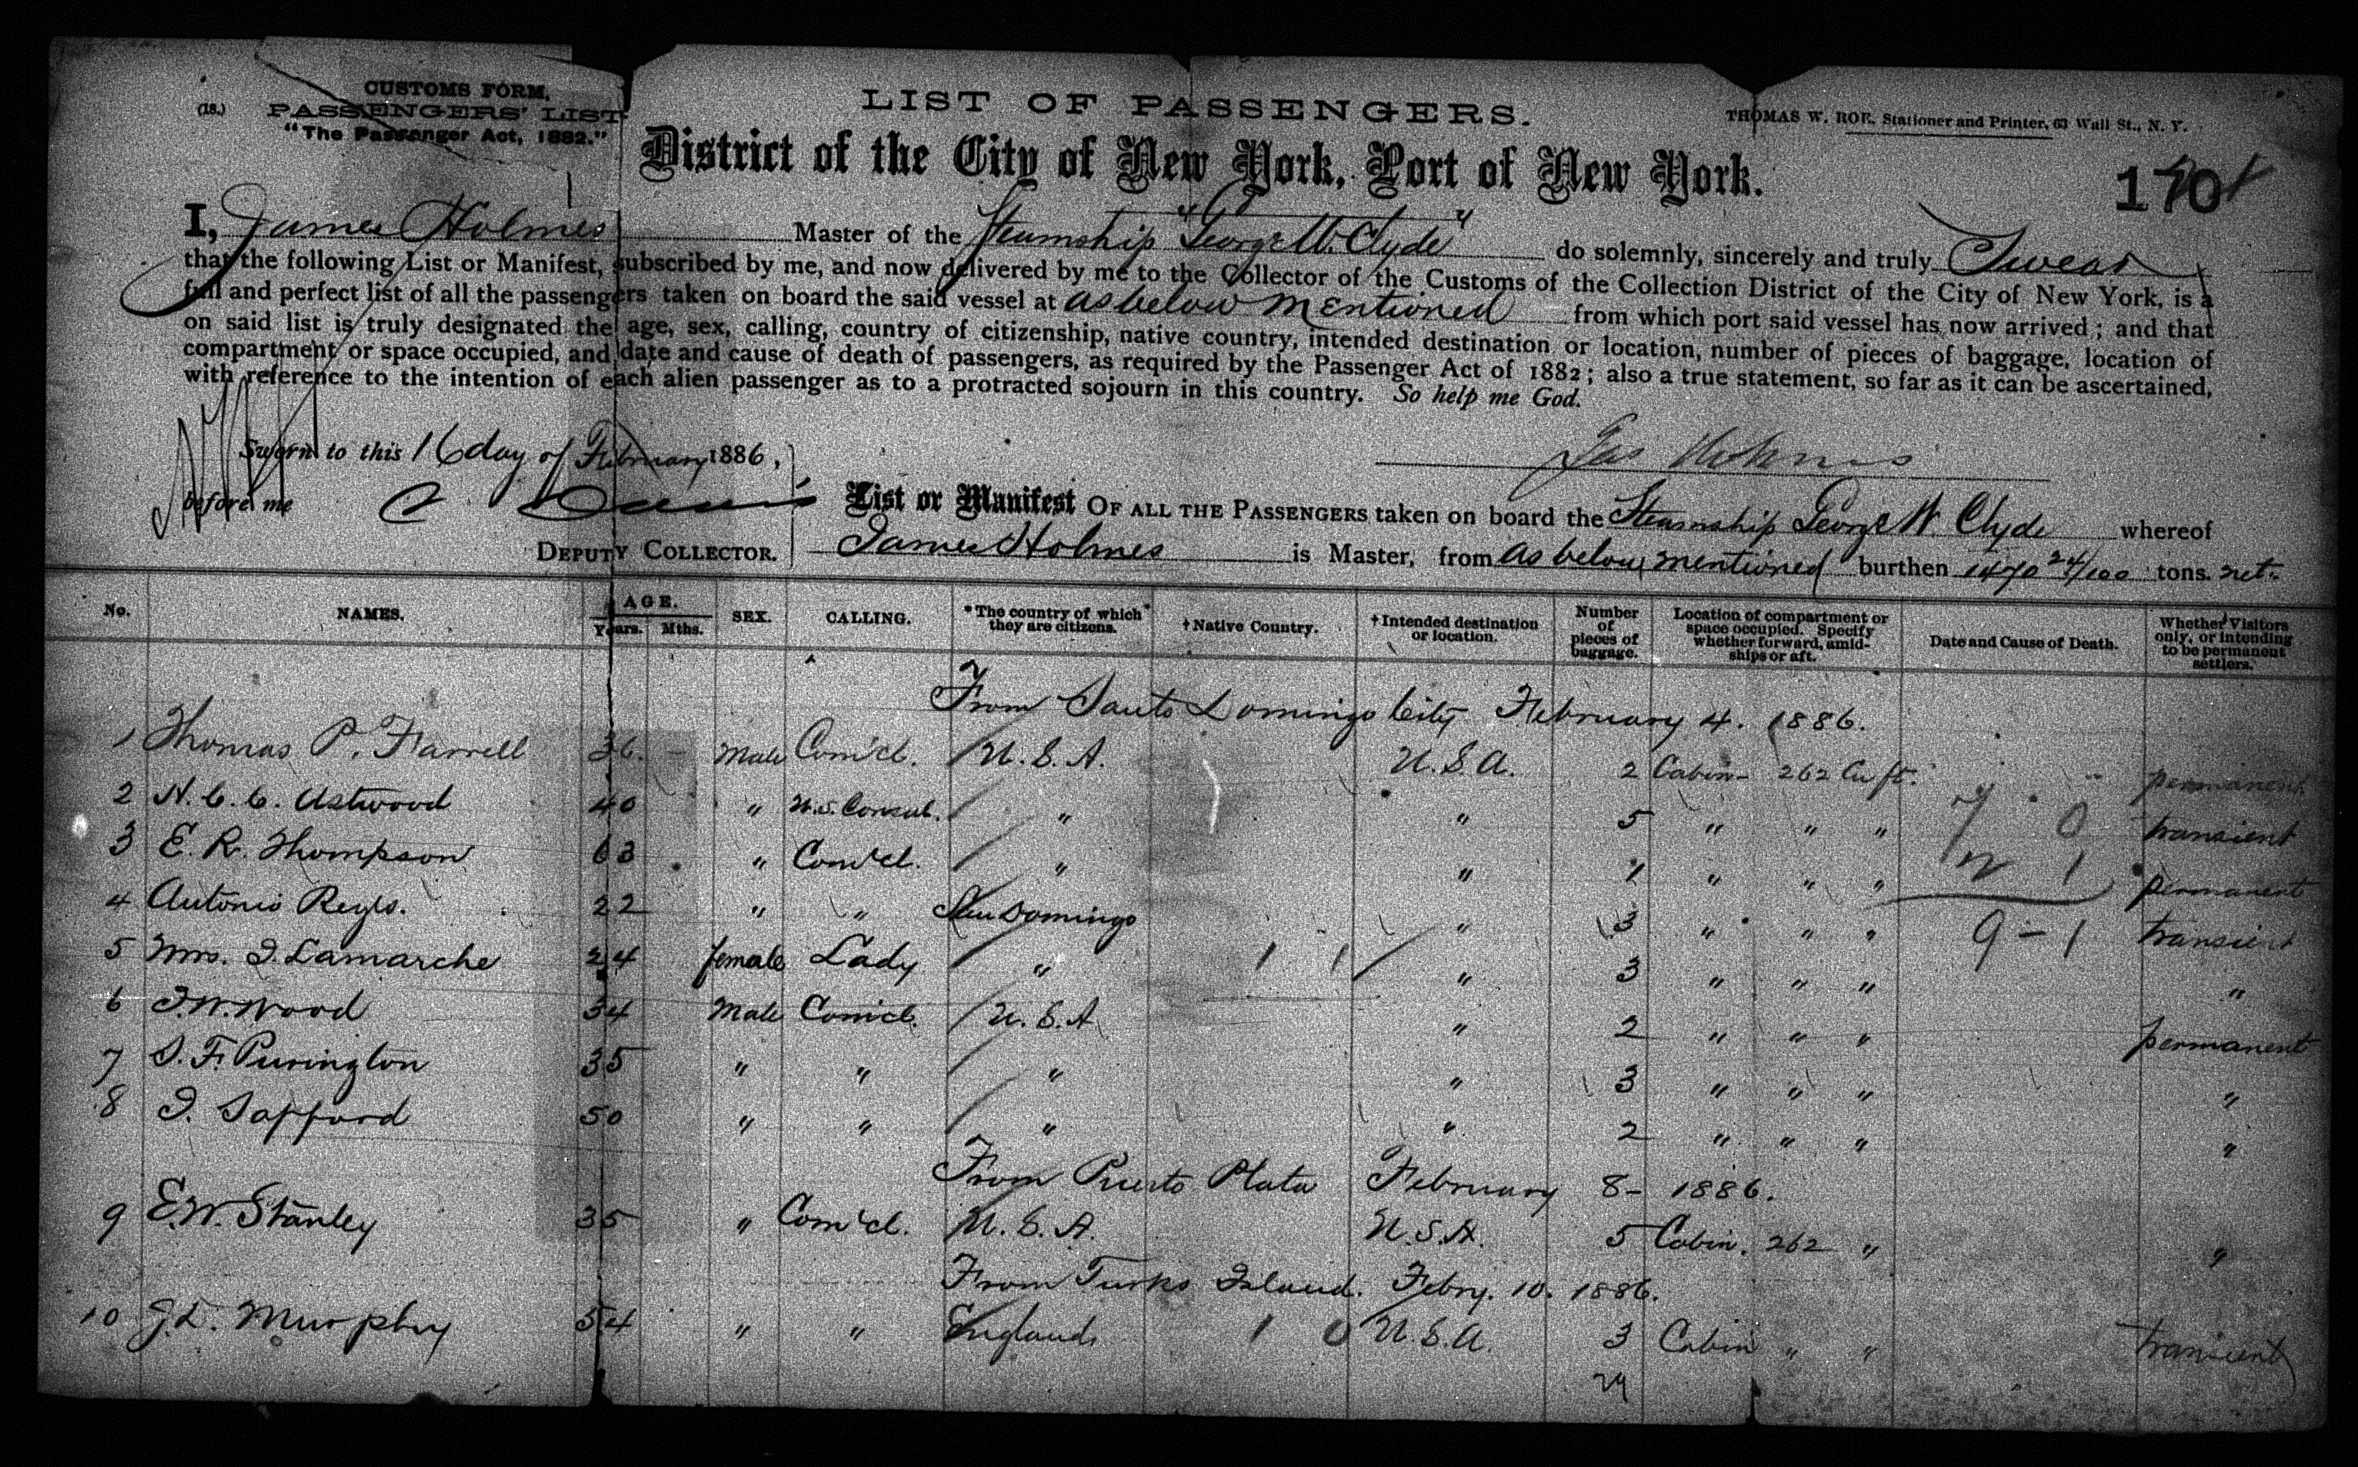 CUSTOMS FORM.
(18.) PASSENGERS' LIST
"The Passenger Act, 1882."
LIST OF PASSENGERS.
THOMAS W. ROE, Stationer and Printer, 63 Wall St., N. Y.
District of the City of New York, Port of New York.
170
I, James Holmes Master of the Steamship "George W. Clyde" do solemnly, sincerely and truly Swear
that the following List or Manifest, subscribed by me, and now delivered by me to the Collector of the Customs of the Collection District of the City of New York, is a
full and perfect list of all the passengers taken on board the said vessel at as below mentioned from which port said vessel has now arrived; and that
on said list is truly designated the age, sex, calling, country of citizenship, native country, intended destination or location, number of pieces of baggage, location of
compartment or space occupied, and date and cause of death of passengers, as required by the Passenger Act of 1882; also a true statement, so far as it can be ascertained,
with reference to the intention of each alien passenger as to a protracted sojourn in this country. So help me God.
Sworn to this 16 day of February 1886,
Jas Holmes
before me
DEPUTY COLLECTOR.
List or Manifest OF ALL THE PASSENGERS taken on board the Steamship George W. Clyde whereof
James Holmes is Master, from as below mentioned burthen 1470 24/100 tons. net.
No. NAMES. AGE. Years. Mths. SEX. CALLING. *The country of which they are citizens. †Native Country. †Intended destination or location. Number of pieces of baggage. Location of compartment or space occupied. Specify whether forward, amidships or aft. Date and Cause of Death. Whether Visitors only, or intending to be permanent settlers.
From Santo Domingo City February 4. 1886.
1 Thomas P. Farrell 36. - Male Com'cl. U.S.A. U.S.A. 2 Cabin - 262 Cu ft. permanent
2 H. C. C. Astwood 40 " U.S. Consul. " " 5 " " " transient
3 E. R. Thompson 63 " Com'cl. " " " " " permanent
4 Antonio Reyes. 22 " " San Domingo " 3 " " " 9 - 1 transient
5 Mrs. J. Lamarche 24 female Lady " 1 1 " 3 " " " "
6 J. W. Wood 34 Male Com'cl. U.S.A. " 2 " " " permanent
7 S. F. Purington 35 " " " " 3 " " " "
8 J. Safford 50 " " " " 2 " " " "
From Puerto Plata February 8 - 1886.
9 E. W. Stanley 35 " Com'cl. U.S.A. U.S.A. 5 Cabin. 262 " "
From Turks Island. Febry. 10. 1886.
10 J. D. Murphy 54 " " England 1 0 U.S.A. 3 Cabin " " transient
29